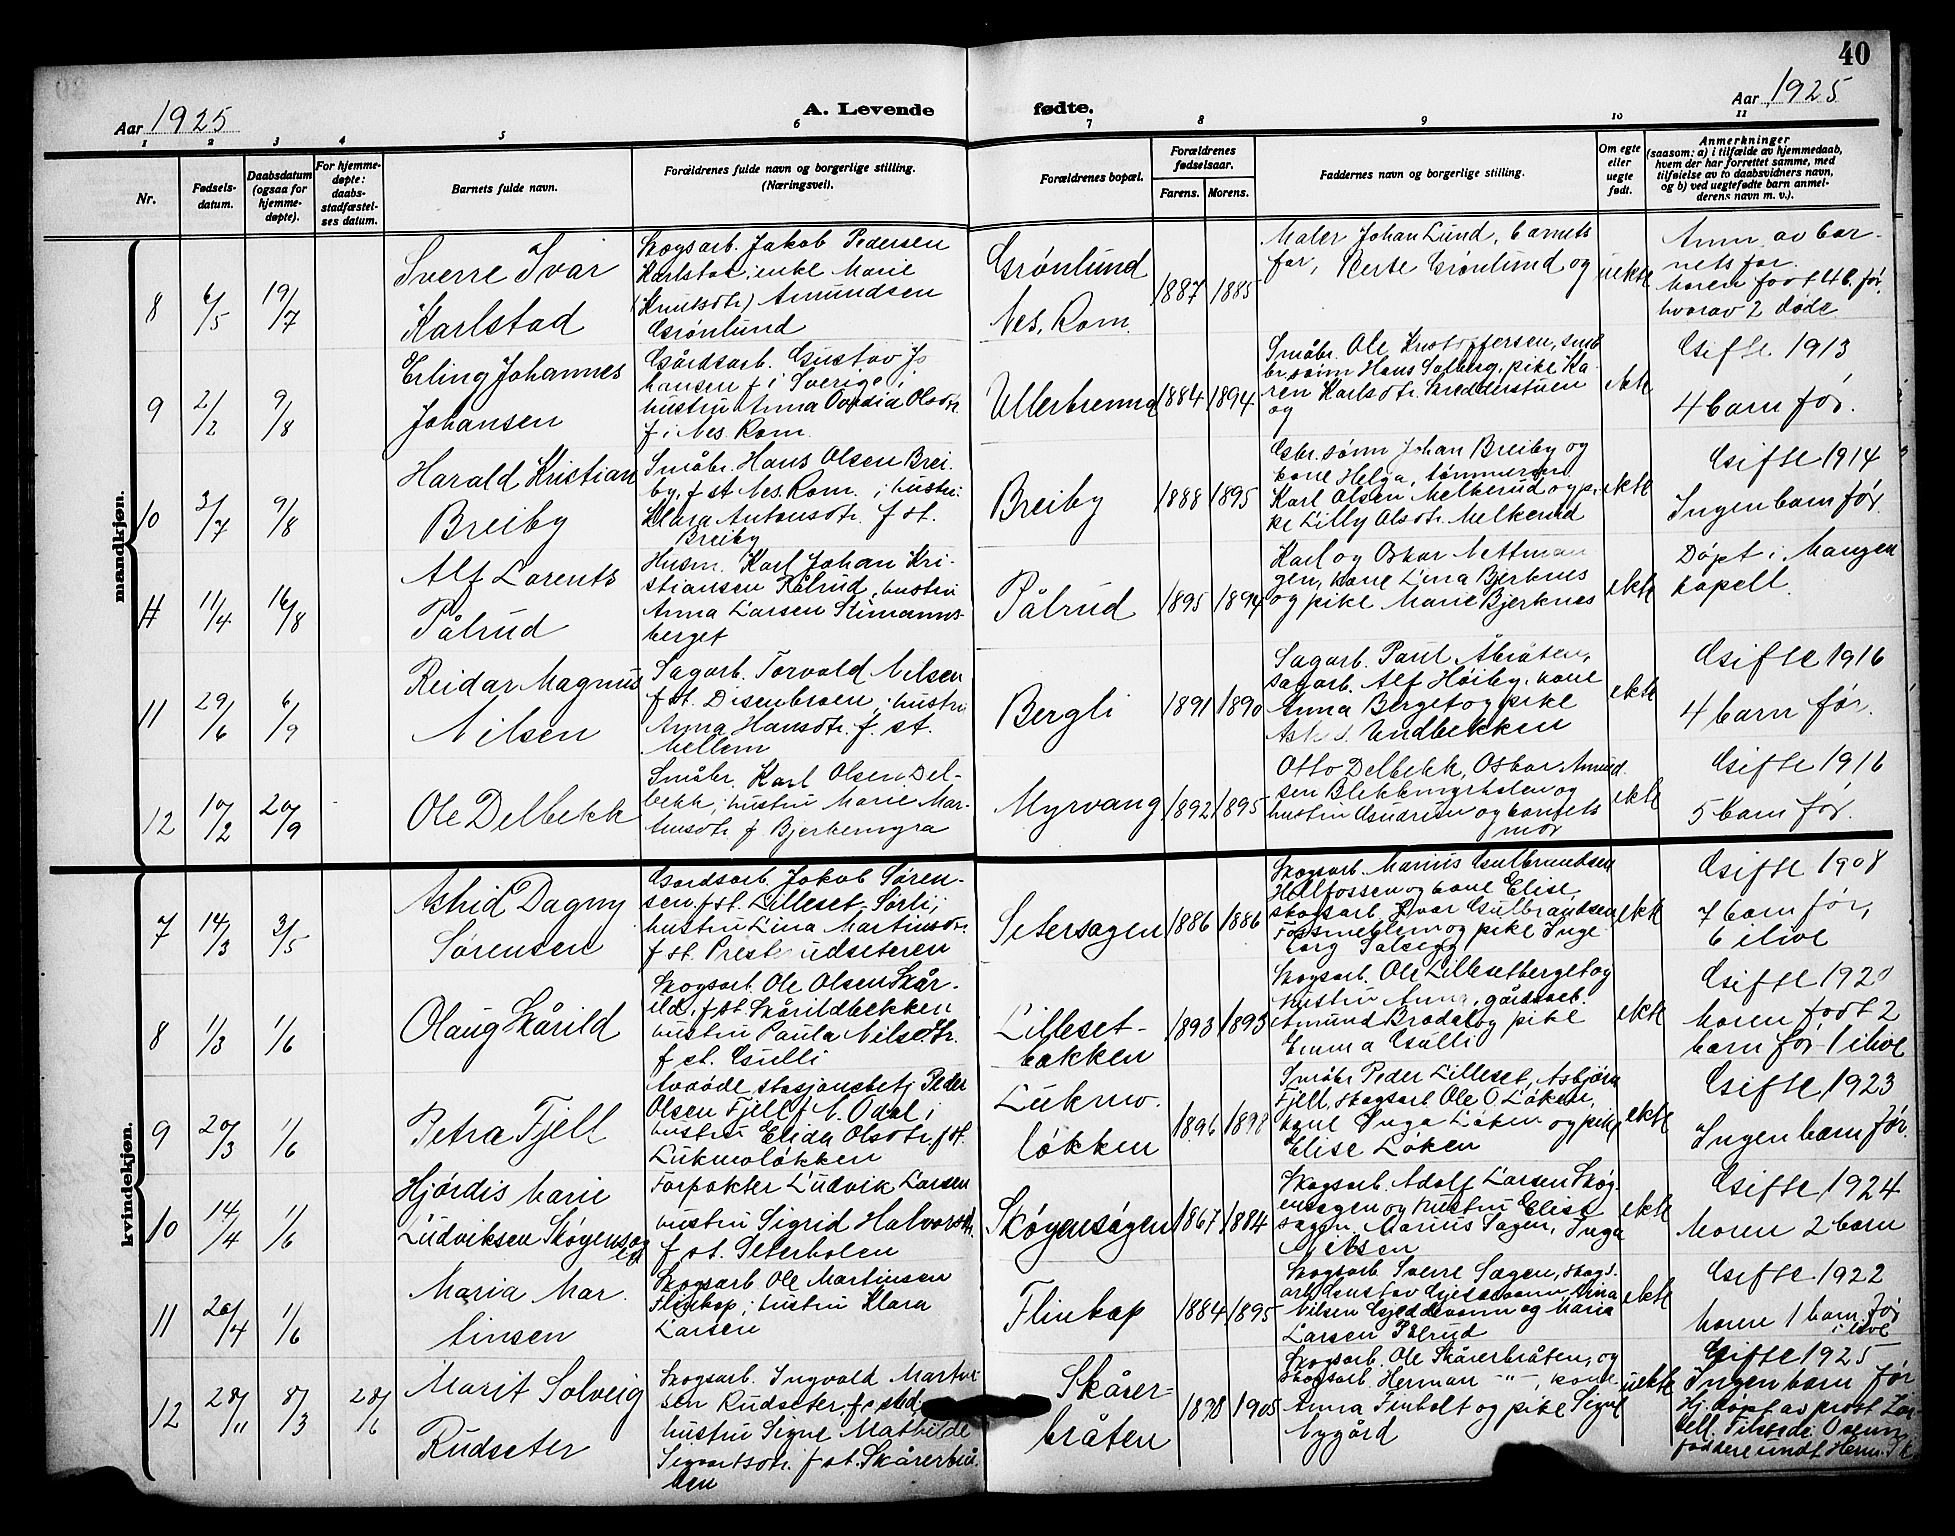 40
Aar 1925
A. Levende fødte.
Aar 1925
1 2 3 4 5 6 7 8 9 10 11
Nr.
Fødsels-
datum.
Daabsdatum
(ogsaa for
hjemme-
døpte).
For hjemme-
døpte:
daabs-
stadfæstel-
ses datum.
Barnets fulde navn.
Forældrenes fulde navn og borgerlige stilling.
(Næringsvei).
Forældrenes bopæl.
Forældrenes
fødselsaar.
Farens. Morens.
Faddernes navn og borgerlige stilling.
Om egte
eller
uegte
født.
Anmerkninger
(saasom: a) i tilfælde av hjemmedaab,
hvem der har forrettet samme, med
tilføielse av to daabsvidners navn,
og b) ved uegtefødte barn anmel-
derens navn m. v.).
mandkjøn.
8
6/5
19/7
Sverre Ivar
Karlstad
Skogsarb. Jakob Pedersen
Karlstad, enke Marie
(Knutsdtr) Amundsen
Grønlund
Grønlund
Nes, Rom.
1887
1885
Maler Johan Lund, barnets
far, Berte Grønlund og
uekte
Anm. av bar-
nets far.
moren født 4 b. før,
hvorav 2 døde
9
2/2
9/8
Erling Johannes
Johansen
Gårdsarb. Gustav Jo
hansen f i Sverige i
hustru Anna Olsdtr
f i Nes, Rom.
Ullerbrenna
1884
1894
Småbr. Ole Kristoffersen, små
br. sønn Hans Solberg, pike Ka-
ren Karlsdtr. Skredderstuen
og
ekte
Gifte 1913
4 barn før.
10
3/7
9/8
Harald Kristian
Breiby
Småbr. Hans Olsen Brei-
by, f st Nes, Rom. i hustru
Klara Antonsdtr. f st.
Breiby
Breiby
1888
1895
Gbr. sønn Johan Breiby og
kone Helga, tømmerm
Karl Olsen Melkerud og pi-
ke Lilly Olsdtr. Melkerud
ekte
Gifte 1914
Ingen barn før.
11
11/4
16/8
Alf Lorents
Pålrud
Husm. Karl Johan Kri-
stiansen Pålrud, hustru
Anna Larsen Stimanns-
berget
Pålrud
1895
1894
Karl og Oskar Nettman
gen, kone Lina Bjerknes
og pike Marie Bjerknes
ekte
Døpt i Mangen
kapell.
11
29/6
6/9
Reidar Magnus
Nilsen
Sagarb. Torvald Nilsen
f st. Disenbroen, hustru
Anna Hansdtr. f. st.
Mellem
Bergli
1891
1890
Sagarb. Paul Åbråten,
sagarb. Alf Høiby, kone
Anna Berget og pike
Undbekken
ekte
Gifte 1916
4 barn før.
12
10/2
20/9
Ole Delbekk
Småbr. Karl Olsen Del-
bekk, hustru Marie Mar-
tinsdtr f Bjerkemyra
Myrvang
1892
1895
Otto Delbekk, Oskar Amund
sen Blekkmyrholen og
hustru Gudrun og barnets
mor
ekte
Gifte 1916
5 barn før.
kvindekjøn.
7
14/3
3/5
Astrid Dagny
Sørensen
Gardsarb. Jakob Søren-
sen, f st. Lilleset-Sørli,
hustru Lina Martinsdtr
f st. Prestrudseteren
Setersagen
1886
1886
Skogsarb. Marius Gulbrandsen
Helfossen og kone Elise,
skogsarb. Ivar Gulbrandsen
Fossmellem og pike Inge
borg Solsegg
ekte
Gifte 1908
7 barn før,
6 ilive
8
1/3
1/6
Olaug Skårild
Skogsarb. Ole Olsen Skår-
ild, f st. Skårildbekken
hustru Paula Nilsdtr.
f st. Gulli
Lilleset-
bakken
1893
1893
Skogsarb. Ole Lillesetberget og
hustru Anna, gårdsarb.
Amund Brodal og pike
Emma Gulli
ekte
Gifte 1920
Moren født 2
barn før 1 ilive
9
20/3
1/6
Petra Fjell
Avdøde stasjonsbetj Peder
Olsen Fjell f N. Odal i
hustru Elida Olsdtr. f st.
Lukmoløkken
Lukmo-
løkken
1896
1898
Småbr Peder Lilleset, Asbjørn
Fjell, skogsarb. Ole O Løken,
kone Inga Løken og pike
Elise Løken
ekte
Gifte 1923
Ingen barn før.
10
14/4
1/6
Hjørdis Marie
Ludviksen Skøgensag
Forpakter Ludvik Larsen
hustru Sigrid Halvorsdtr.
f st. Seterholen
Skøgensagen
1867
1884
Skogsarb. Adolf Larsen Skøg-
ensagen og hustru Elise
sagen, Marius Sagen, Inga
Nilsen
ekte
Gifte 1924
Moren 2 barn
11
26/4
1/6
Maria Mar-
tinsen
Skogsarb Ole Martinsen
Flinkop, hustru Klara
Larsen
Flinkop
1884
1895
Skogsarb. Sverre Sagen, skogs.
arb Gustav Gjeddevann, Anna
Nilsen Gjeddevann og Maria
Larsen Pålrud
ekte
Gifte 1922
Moren 1 barn før
i live
12
28/11
8/3
28/6
Marit Solveig
Rudseter
Skogsarb. Ingvald Martin
sen Rudseter, f sted
hustru Signe Mathilde
Sigvartsdtr. f st. Skårerbrå-
ten
Skårer-
bråten
1898
1905
Skogsarb. Ole Skårerbråten, og
skogsarb. Herman -"-, kone
Anna Finholt og pike Signe
Nygård
uekte
Gifte 1925
Ingen barn før
Hj. døpt av prost Lor
Tilstede
faddere undt. Herm. Sk